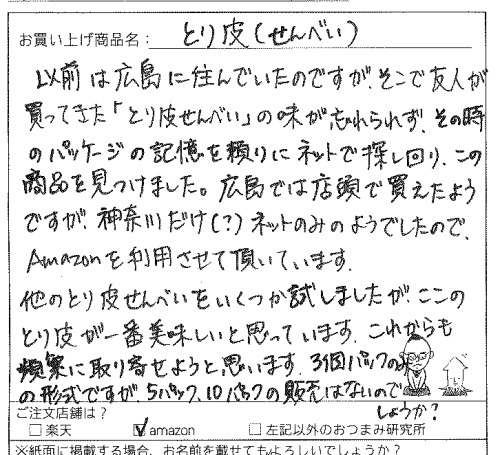 お買い上げ商品名： とり皮(せんべい)
以前は広島に住んでいたのですが、そこで友人が
買ってきた「とり皮せんべい」の味が忘れられず、その時
のパッケージの記憶を頼りにネットで探し回り、この
商品を見つけました。広島では店頭で買えたよう
ですが、神奈川だけ(?)ネットのみのようでしたので、
Amazonを利用させて頂いています。
他のとり皮せんべいをいくつか試しましたが、ここの
とり皮が一番美味しいと思っています。これからも
頻繁に取り寄せようと思います。3個パックのみ
の形式ですが、5パック、10パックの販売はないので
しょうか?
ご注文店舗は？
□楽天 ☑amazon □左記以外のおつまみ研究所
※紙面に掲載する場合、お名前を載せてもよろしいでしょうか？